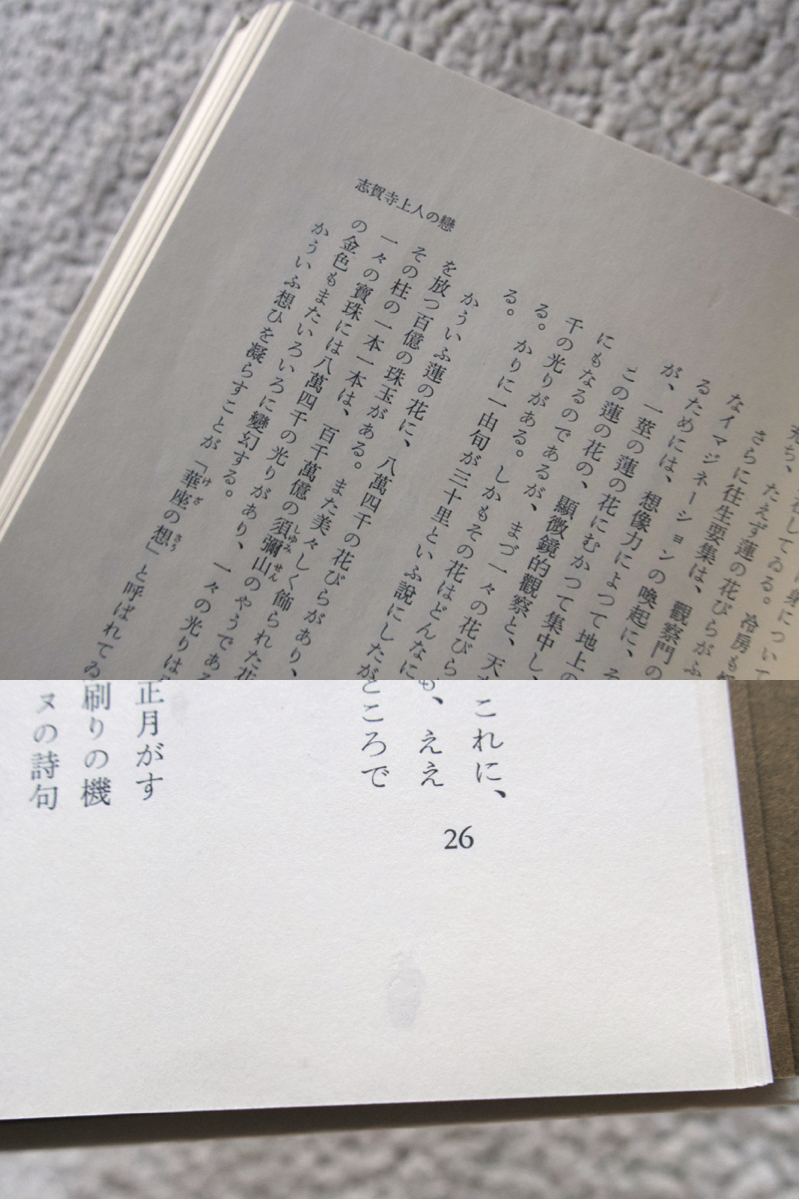 志賀寺上人の戀
充ち、
たえず蓮の花びらがふ
さらに往生要集は、觀察門の
なイマジネーションの喚起に、そ
るためには、想像力によつて地上の
が、一莖の蓮の花にむかつて集中し、
この蓮の花の、顯微鏡的觀察と、天
にもなるのであるが、まづ一々の花びら
千の光りがある。しかもその花はどんなに
る。かりに一由旬が三十里といふ說にしたが
る。
かういふ蓮の花に、八萬四千の花びらがあり、
を放つ百億の珠玉がある。また美々しく飾られた
その柱の一本一本は、百千萬億の須彌山のやうである
一々の寶珠には八萬四千の光りがあり、一々の光りは
の金色もまたいろいろに變幻する。
かういふ想ひを凝らすことが「華座の想」と呼ばれてゐ
しゆみせん
けざ
さう
これに、
も、ええ
ところで
正月がす
刷りの機
ヌの詩句
26